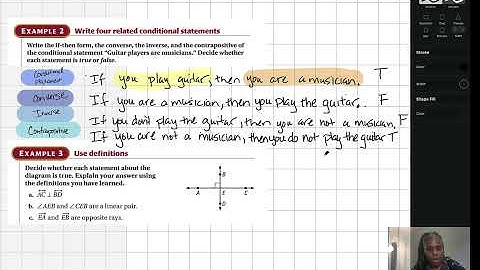 EXAMPLE 2 Write four related conditional statements
Write the if-then form, the converse, the inverse, and the contrapositive of
the conditional statement "Guitar players are musicians." Decide whether
each statement is true or false.
Conditional
statement
If you play guitar, then you are a musician. T
Converse
If you are a musician, then you play the guitar. F
Inverse
If you don't play the guitar, then you are not a musician, F
Contrapositive
If you are not a musician, then you do not play the guitar T
EXAMPLE 3 Use definitions
Decide whether each statement about the
diagram is true. Explain your answer using
the definitions you have learned.
a. AC ⊥ BD
b. ∠AEB and ∠CEB are a linear pair.
c. EA and EB are opposite rays.
B
A E C
D
Stroke
Shape Fill